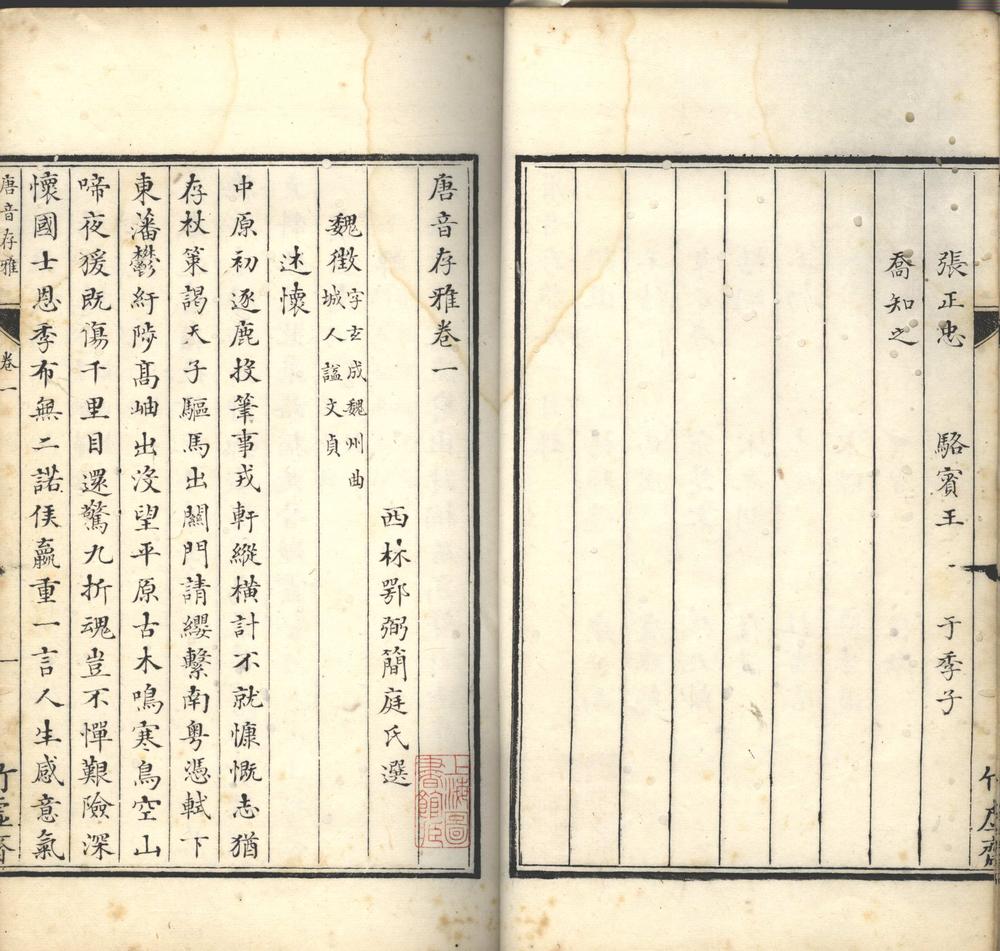 竹虛齋
張正忠 駱賓王 于季子
喬知之
唐音存雅卷一
上海圖書館藏
西林鄂弼簡庭氏選
魏徵 字玄成魏州曲
城人謚文貞
述懷
中原初逐鹿投筆事戎軒縱橫計不就慷慨志猶
存杖策謁天子驅馬出關門請纓繫南粵憑軾下
東藩鬱紆陟高岫出沒望平原古木鳴寒鳥空山
啼夜猨既傷千里目還驚九折魂豈不憚艱險深
懷國士恩季布無二諾侯嬴重一言人生感意氣
唐音存雅 卷一 一 竹虛齋